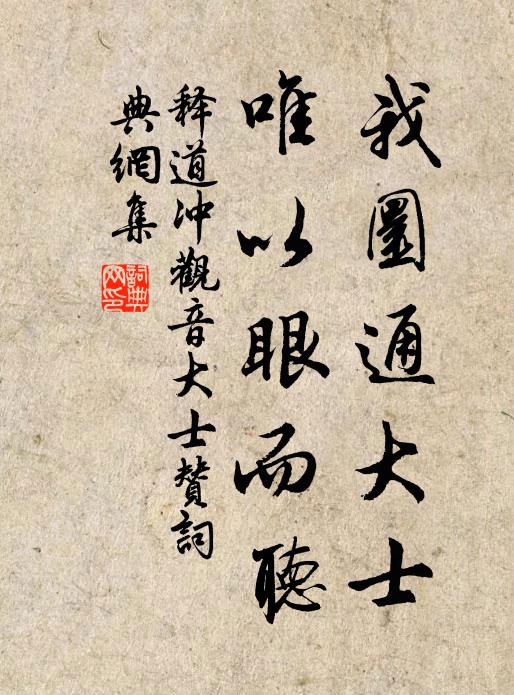 我圓通大士
唯以眼而聽
释道冲觀音大士贊詞
典網集
詞典網印